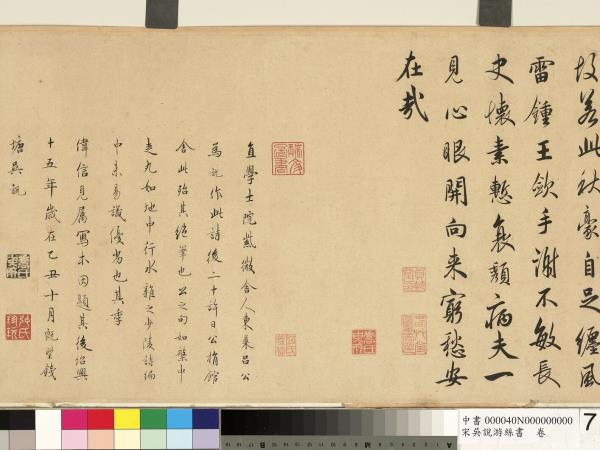 故若此秋豪自足纏風
雷鍾王歛手謝不敏長
史懷素慙衰頽病夫一
見心眼開向来窮愁安
在哉
直學士院紫微舍人東萊呂公
為說作此詩後二十許日公捐館
舍此殆其絕筆也公之句如槃中
走丸如地中行水雖之少陵詩編
中未易議優劣也其季
偉信見屬寫本因題其後紹興
十五年歲在乙丑十月既望錢
塘吳說
中書 000040N000000000
宋吳說游絲書 卷
7